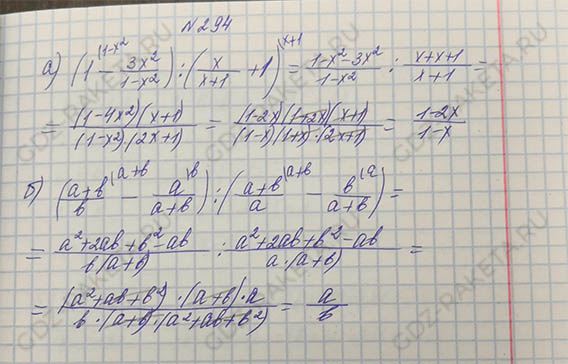 №294
а) (1 |1-x² - 3x²/(1-x²)) : (x/(x+1) + 1 |x+1) = (1-x²-3x²)/(1-x²) : (x+x+1)/(x+1) =
= (1-4x²)(x+1)/((1-x²)·(2x+1)) = (1-2x)(1+2x)(x+1)/((1-x)(1+x)·(2x+1)) = (1-2x)/(1-x)
б) ((a+b)/b |a+b - a/(a+b) |b) : ((a+b)/a |a+b - b/(a+b) |a) =
= (a²+2ab+b²-ab)/(b(a+b)) : (a²+2ab+b²-ab)/(a·(a+b)) =
= (a²+ab+b²)·(a+b)·a/(b·(a+b)·(a²+ab+b²)) = a/b
GDZ-RAKETA.RU
GDZ-RAKETA.RU
GDZ-RAKETA.RU
GDZ-RAKETA.RU